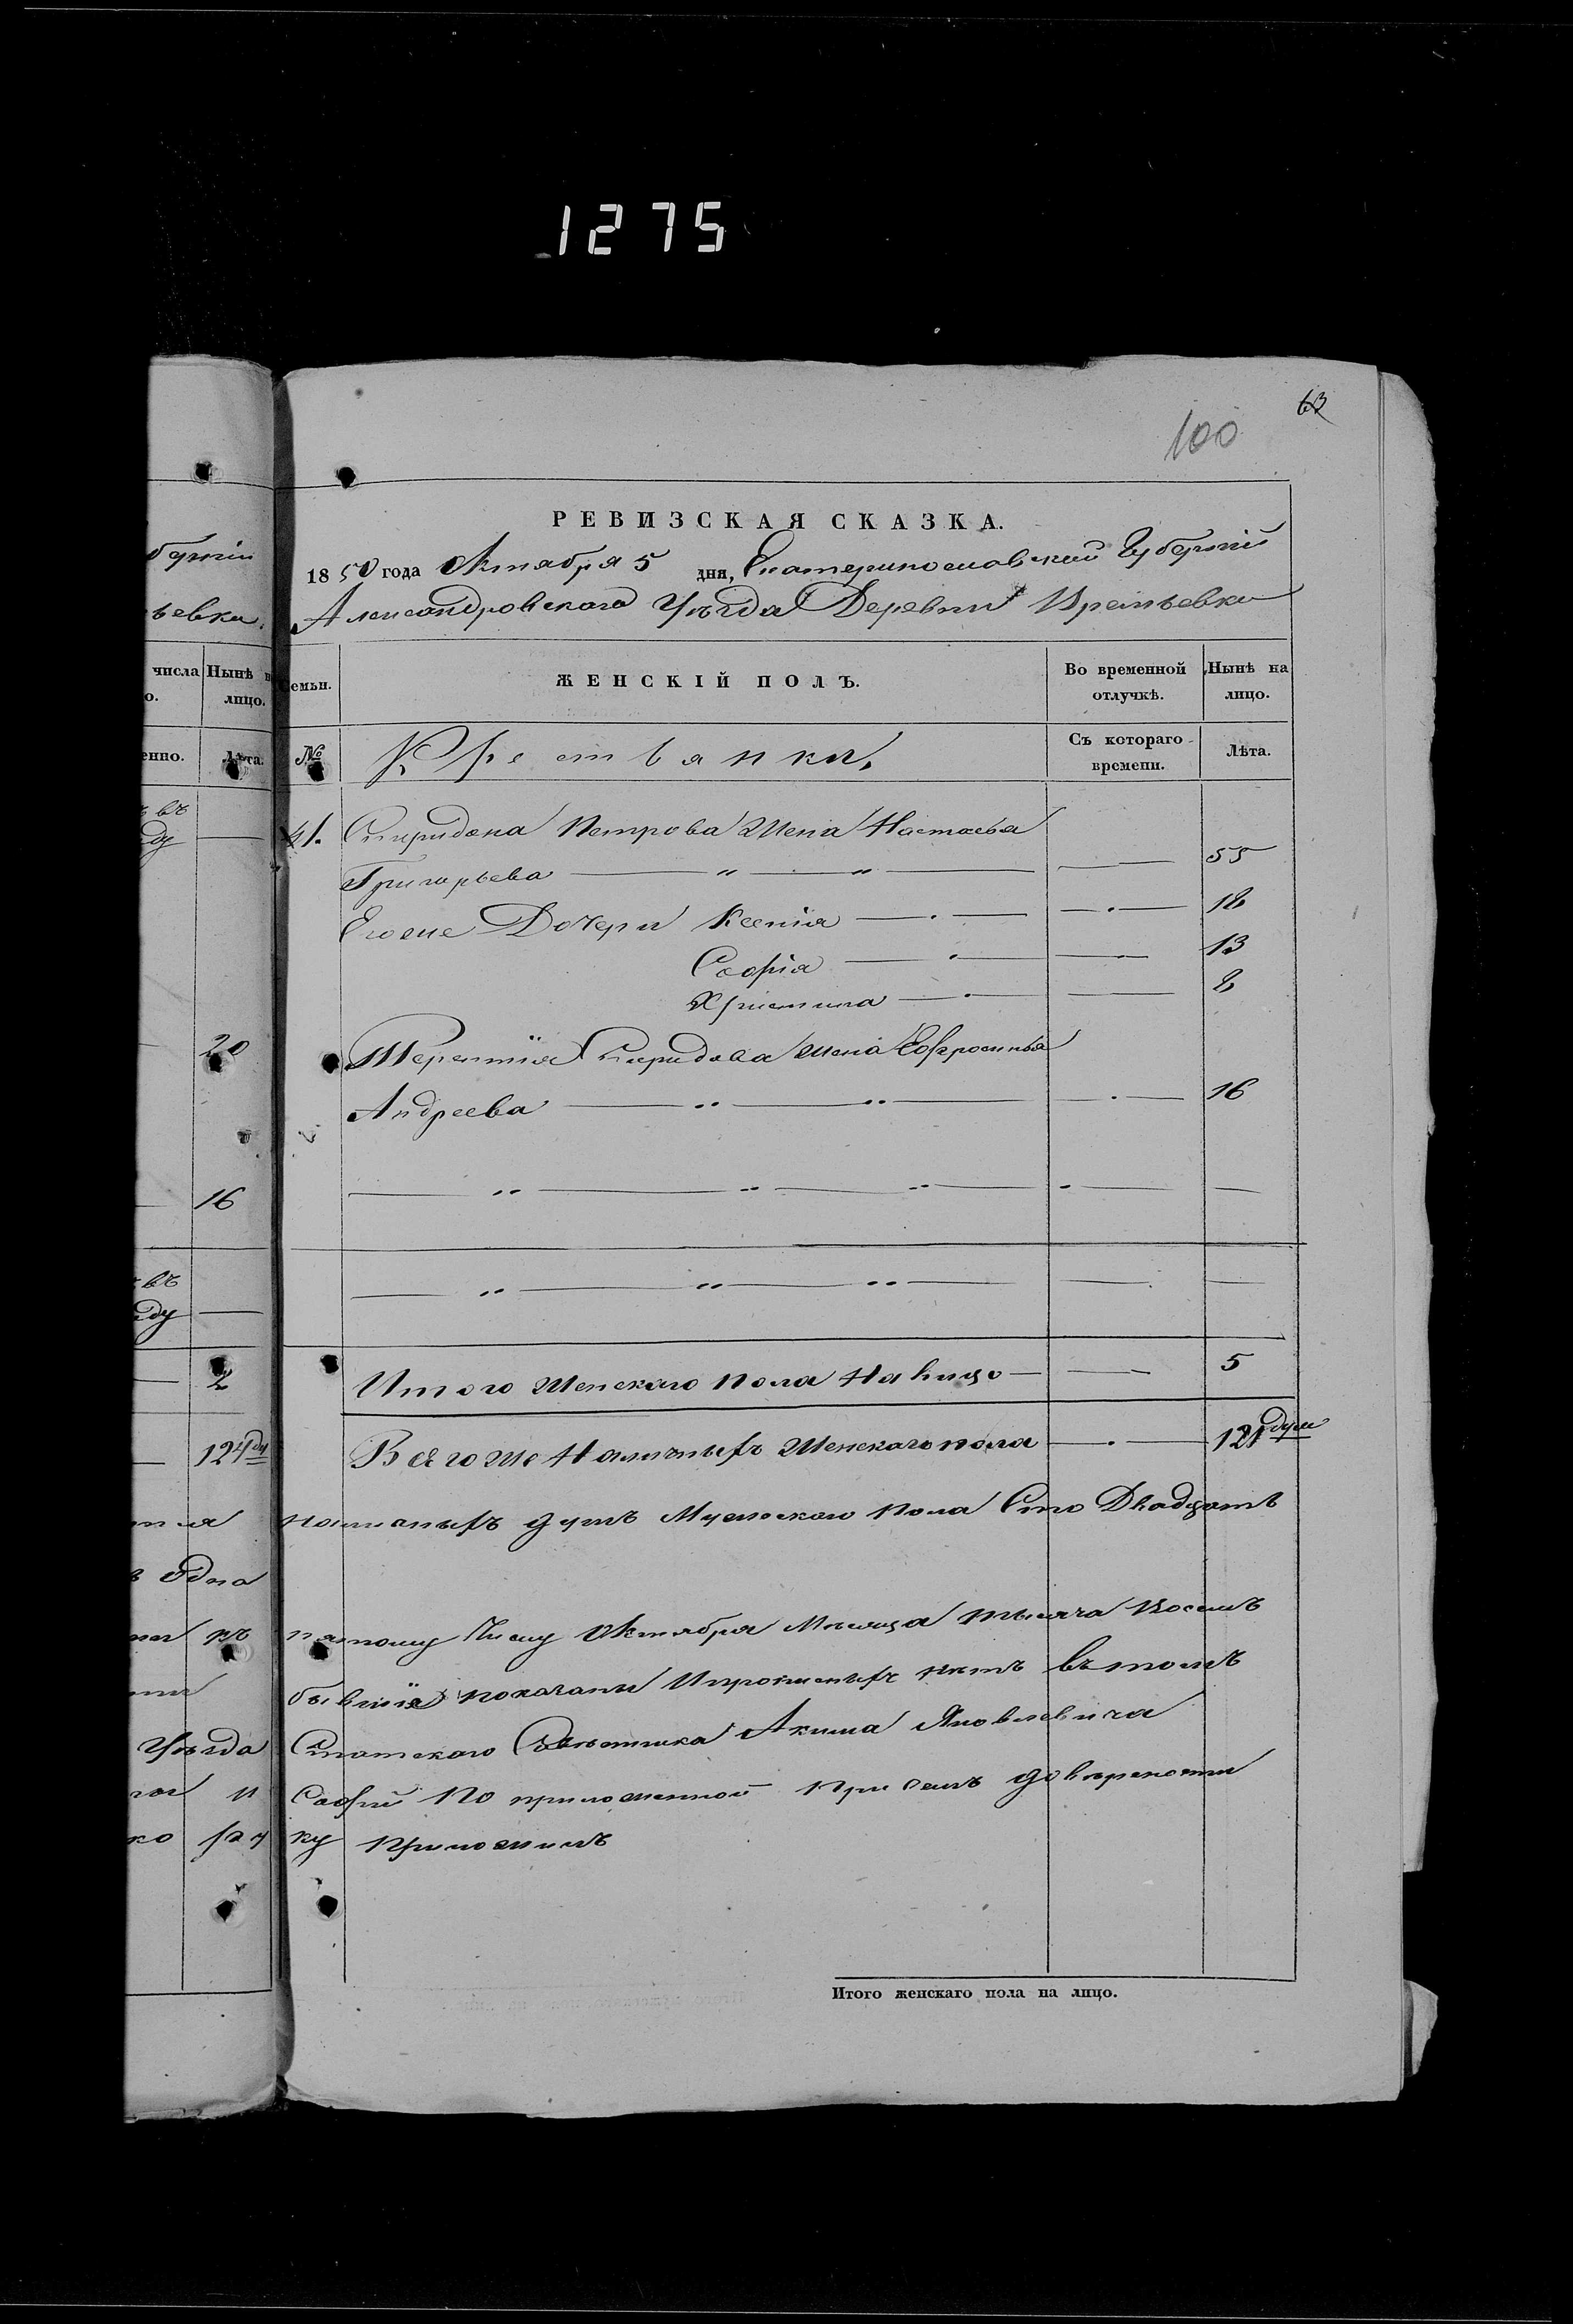 1275
63
100
РЕВИЗСКАЯ СКАЗКА.
1850 года Октября 5 дня, Екатеринославской Губерніи
Александровского Уѣзда Деревни Времьевки
Семьи. ЖЕНСКІЙ ПОЛЪ. Во временной отлучкѣ. Нынѣ на лицо.
№ Крестьянки. Съ котораго времени. Лѣта.
41. Спиридона Петрова Жена Настасья
Григорьева 55
Егоже Дочери Ксенія 18
Софія 13
Христина 8
Терентія Спиридова жена Евфросинья
Андреева 16
Итого Женскаго пола На лицо 5
Всегоже Наличныхъ Женскаго пола 121 душ
душъ Мужескаго пола Сто Двадцать
пятому Числу Октября Мѣсяца тысяча Восемь
бывшіе показаны Ипрописныхъ нѣтъ въ томъ
Статского Совѣтника Акима Яковлевича
Софіи По приложенной При семъ довѣренности
ку Приложилъ
Итого женскаго пола на лицо.
берніи
ьевки.
числа Нынѣ н
о. лицо.
енно. Лѣта.
въ
ду
20
16
въ
ду
2
124 ду
Одна
къ
Уѣзда
и
ко ру